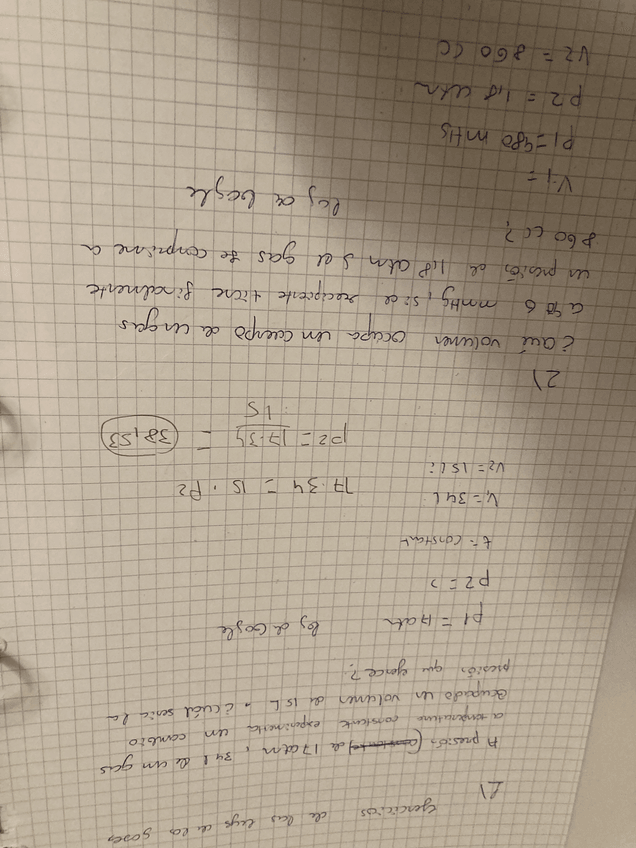 ejercicios de las leys de los gases
1)
A presión de 17 atm, 34 l de un gas
a temperatura constante experimenta un cambio
ocupado un volumen de 15 L. ¿cuál seria la
presión que ejerce?
p1 = 17 atm
p2 = ?
t = constante
V1 = 34 L
V2 = 15 L
17.34 = 15 . P2
P2 = 17.34 = 38,53
15
2)
¿qué volumen ocupa un cuerpo de un gas
a mmHg, si el recipiente tiene finalmente
un presión de 1,8 atm y el gas se comprime a
860 cc?
V1 =
P1 = 980 mHg
P2 = 1,8 atm
V2 = 860 CC